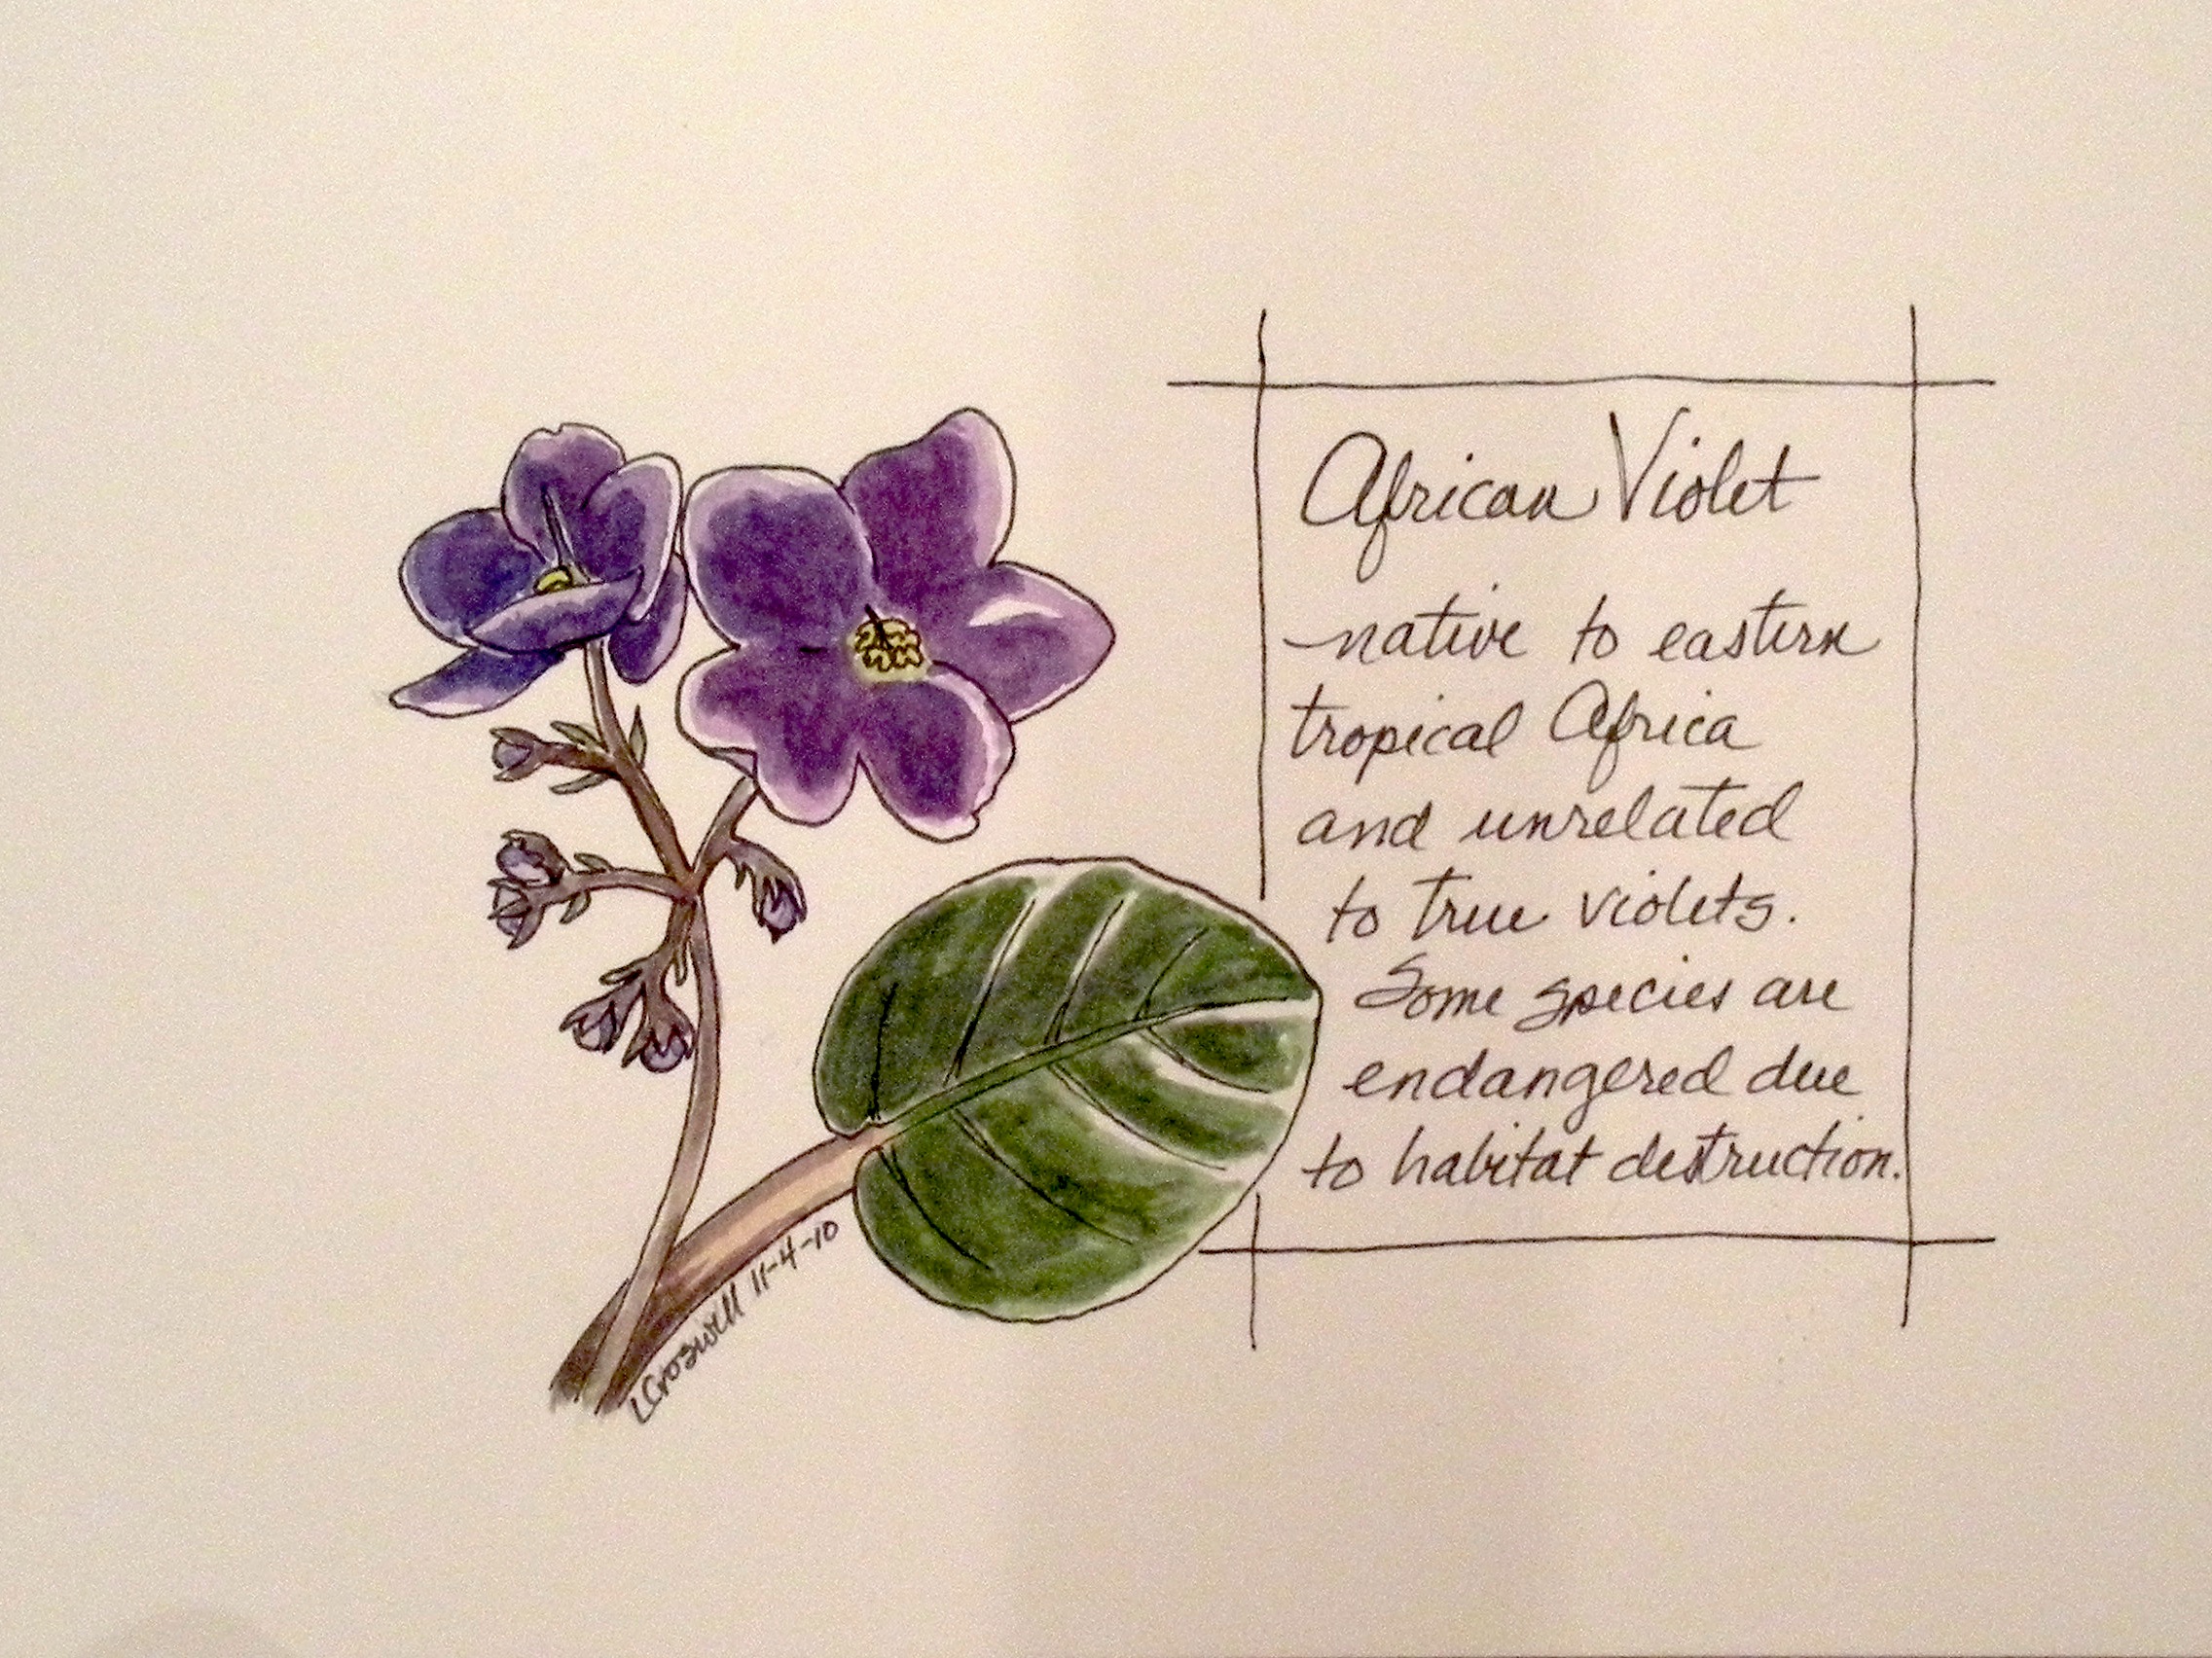 African Violet
native to eastern
tropical Africa
and unrelated
to true violets.
Some species are
endangered due
to habitat destruction.
LCroswell 11-4-10